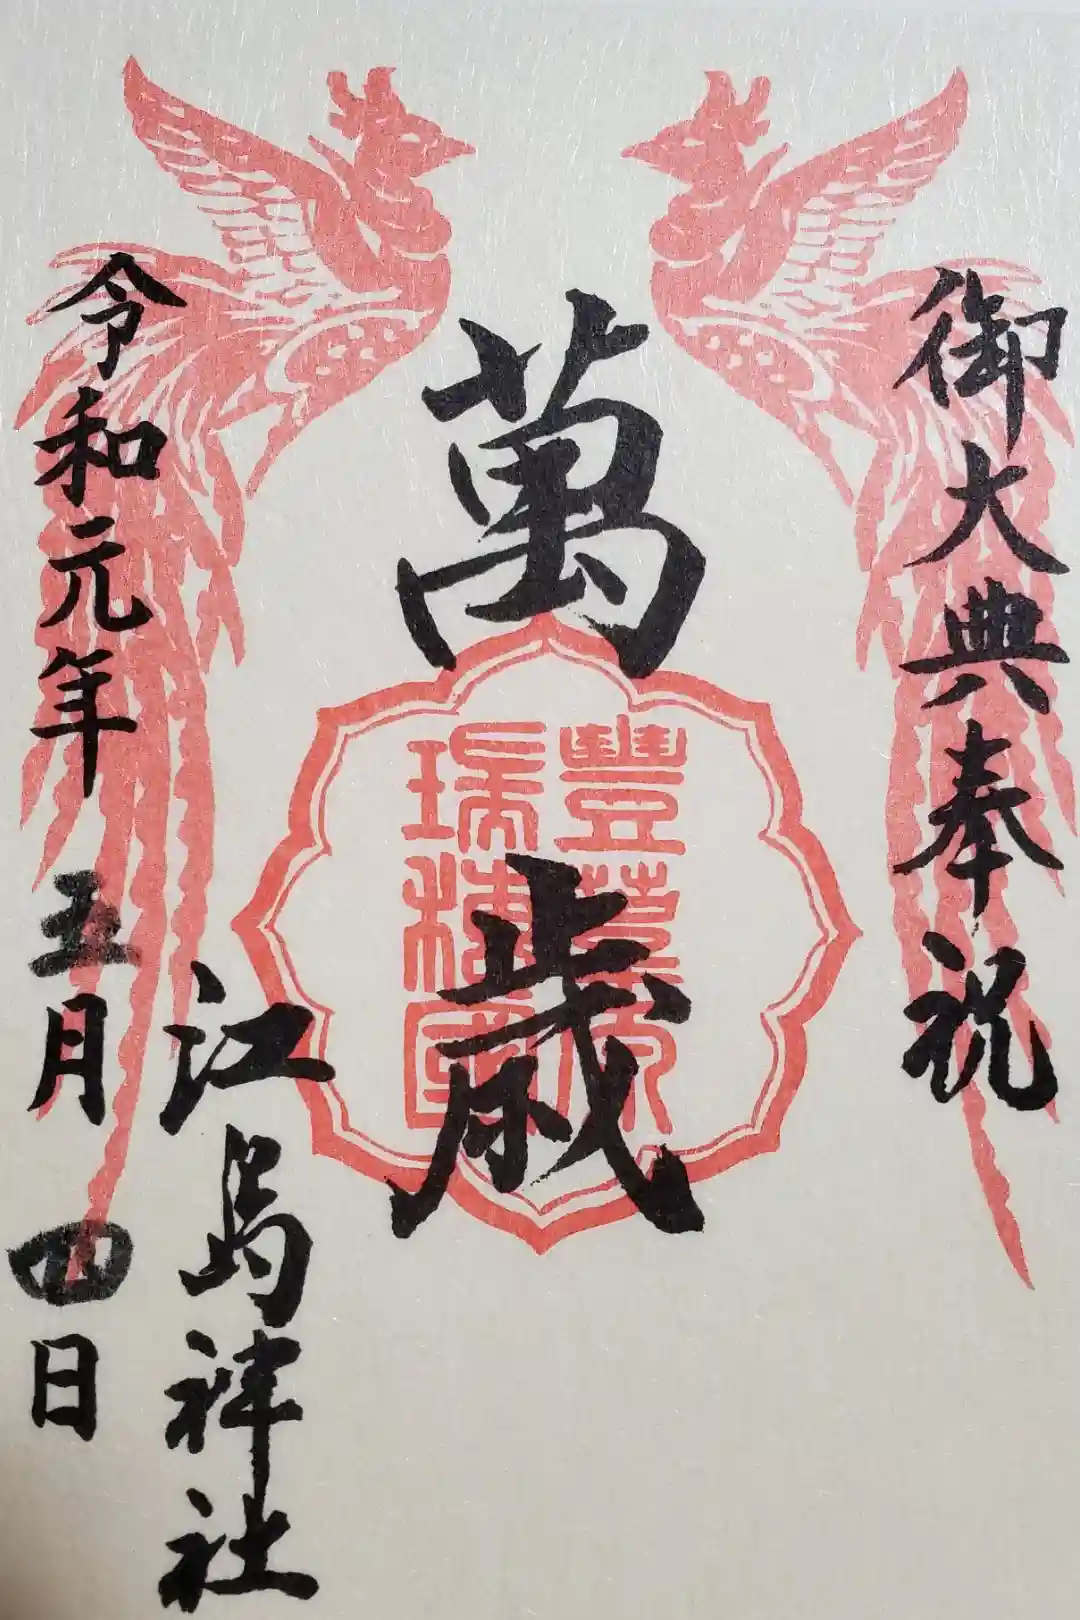 御大典奉祝
萬歳
豐葦原
瑞穂國
江島神社
令和元年五月四日